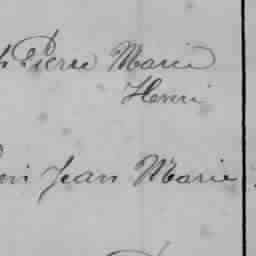 Pierre Marie
Henri
Jean Marie